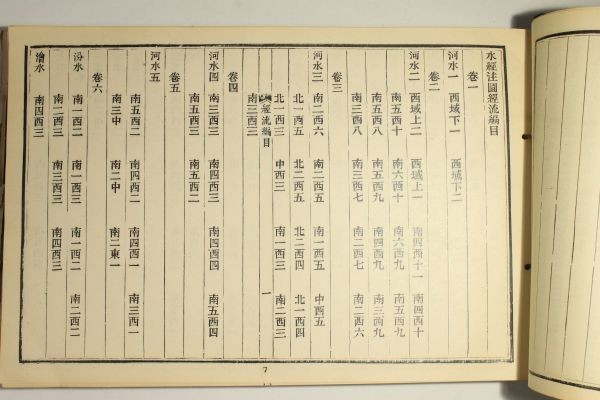 水經注圖經流編目
卷一
河水一 西域下一 西域下二
卷二
河水二 西域上二 西域上一 南四西十一 南四西十
南五西十 南六西十 南六西九 南五西九
南五西八 南五西九 南四西九 南三西九
南三西八 南三西七 南二西七 南二西六
卷三
河水三 南二西六 南二西五 南一西五 中西五
北一西五 北二西五 北二西四 北一西四
北一西三 中西三 南一西三 南二西三
經流編目 一
南三西三
卷四
河水四 南三西三 南四西三 南四西四 南五西四
南五西三 南五西二
卷五
河水五 南五西二 南四西二 南四西一 南三西一
南三中 南二中 南二東一
卷六
汾水 南一西二 南一西三 南一西二 南二西二
南二西三 南三西三 南四西三
澮水 南四西三
7